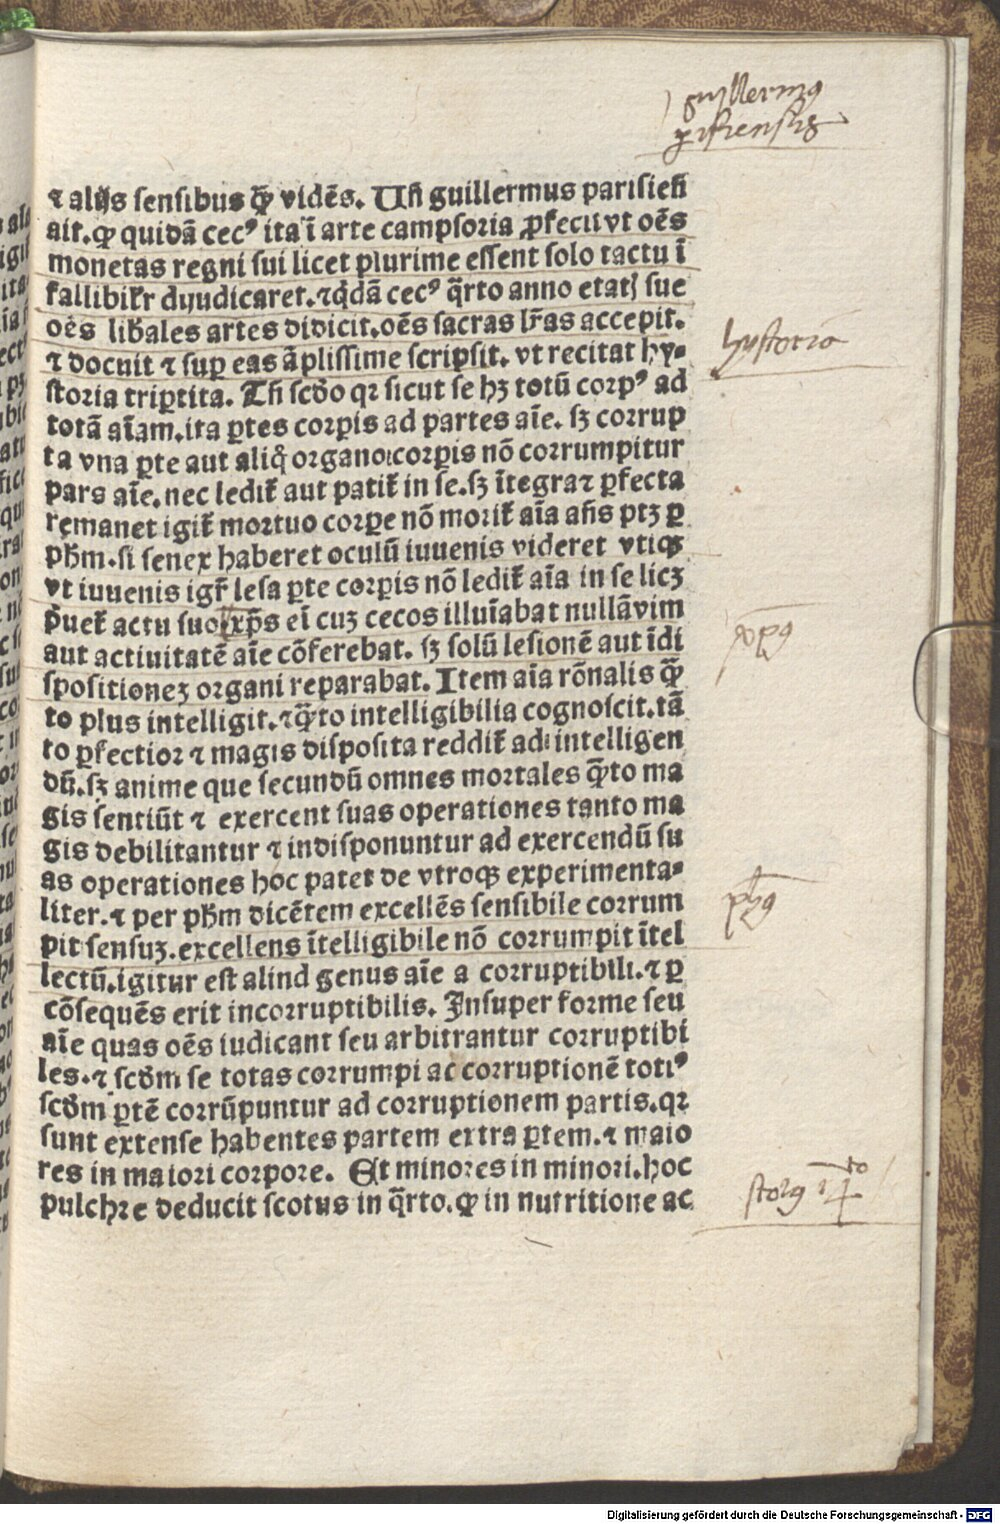 guillermus
parisiensis
⁊ alijs sensibus ꝙ̄ vidēs. Un̄ guillermus parisień
ait. ꝙ quidā cecꝰ ita ī arte campsoria ꝓfecit vt oēs
monetas regni sui licet plurime essent solo tactu ī
fallibilr̄ dijudicaret. ⁊ q̄dā cecꝰ q̄rto anno etatꝭ sue
oēs libales artes didicit. oēs sacras lr̄as accepit.
⁊ docuit ⁊ suꝑ eas āplissime scripsit. vt recitat hy⸗
storia triꝑtita. Tn̄ scd̄o qꝛ sicut se hꝫ totū corpꝰ ad
totā aīam. ita ꝑtes corꝑis ad partes aīe. sꝫ corrup
ta vna ꝑte aut aliq̊ organo corꝑis nō corrumpitur
pars aīe. nec ledit᷑ aut patit᷑ in se. sꝫ ītegra ⁊ ꝑfecta
remanet igit᷑ mortuo corꝑe nō morit᷑ aīa an̄s ptꝫ ꝑ
ph̄m. si senex haberet oculū iuuenis videret vtiqꝫ
vt iuuenis igr̄ lesa ꝑte corꝑis nō ledit᷑ aīa in se licꝫ
p̄uet᷑ actu suo xp̄s em̄ cuꝫ cecos illuīabat nullā vim
aut actiuitatē aīe cōferebat. sꝫ solū lesionē aut īdi
spositioneꝫ organi reparabat. Item aīa rōnalis ꝙ̄
to plus intelligit. ⁊ ꝙ̄to intelligibilia cognoscit. tā
to ꝑfectior ⁊ magis disposita reddit᷑ ad intelligen
dū. sꝫ anime que secundū omnes mortales ꝙ̄to ma
gis sentiūt ⁊ exercent suas operationes tanto ma
gis debilitantur ⁊ indisponuntur ad exercendū su
as operationes hoc patet de vtroqꝫ experimenta⸗
liter. ⁊ per ph̄m dicētem excellēs sensibile corrum
pit sensuꝫ. excellens ītelligibile nō corrumpit ītel
lectū. igitur est aliud genus aīe a corruptibili. ⁊ ꝑ
cōsequēs erit incorruptibilis. Insuper forme seu
aīe quas oēs iudicant seu arbitrantur corruptibi
les. ⁊ scd̄m se totas corrumpi ac corruptionē totiꝰ
scd̄m ꝑtē corrūpuntur ad corruptionem partis. qꝛ
sunt extense habentes partem extra ꝑtem. ⁊ maio
res in maiori corpore. Et minores in minori. hoc
pulchre deducit scotus in q̄rto. ꝙ in nutritione ac
hystoria
xp̄s
ph̄s
scotꝰ ī 4to
Digitalisierung gefördert durch die Deutsche Forschungsgemeinschaft - DFG